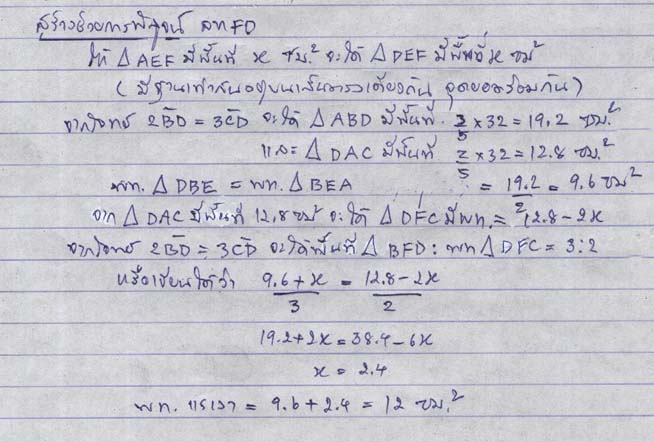 สร้างด้วยการพิสูจน์ ลาก FD
ให้ △ AEF มีพื้นที่ x ซม.² จะได้ △ DEF มีพื้นที่ x ซม²
( มีฐานเท่ากันอยู่บนเส้นตรงเดียวกัน จุดยอดร่วมกัน )
จากโจทย์ 2BD = 3CD จะได้ △ ABD มีพื้นที่ 3/5 x 32 = 19.2 ซม.²
และ △ DAC มีพื้นที่ 2/5 x 32 = 12.8 ซม.²
พท. △ DBE = พท. △ BEA = 19.2/2 = 9.6 ซม²
จาก △ DAC มีพื้นที่ 12.8 ซม² จะได้ △ DFC มีพท. = 12.8 - 2x
จากโจทย์ 2BD = 3CD จะได้พื้นที่ △ BFD : พท △ DFC = 3:2
หรือเขียนได้ว่า 9.6 + x / 3 = 12.8 - 2x / 2
19.2 + 2x = 38.4 - 6x
x = 2.4
พท. แรเงา = 9.6 + 2.4 = 12 ซม.²